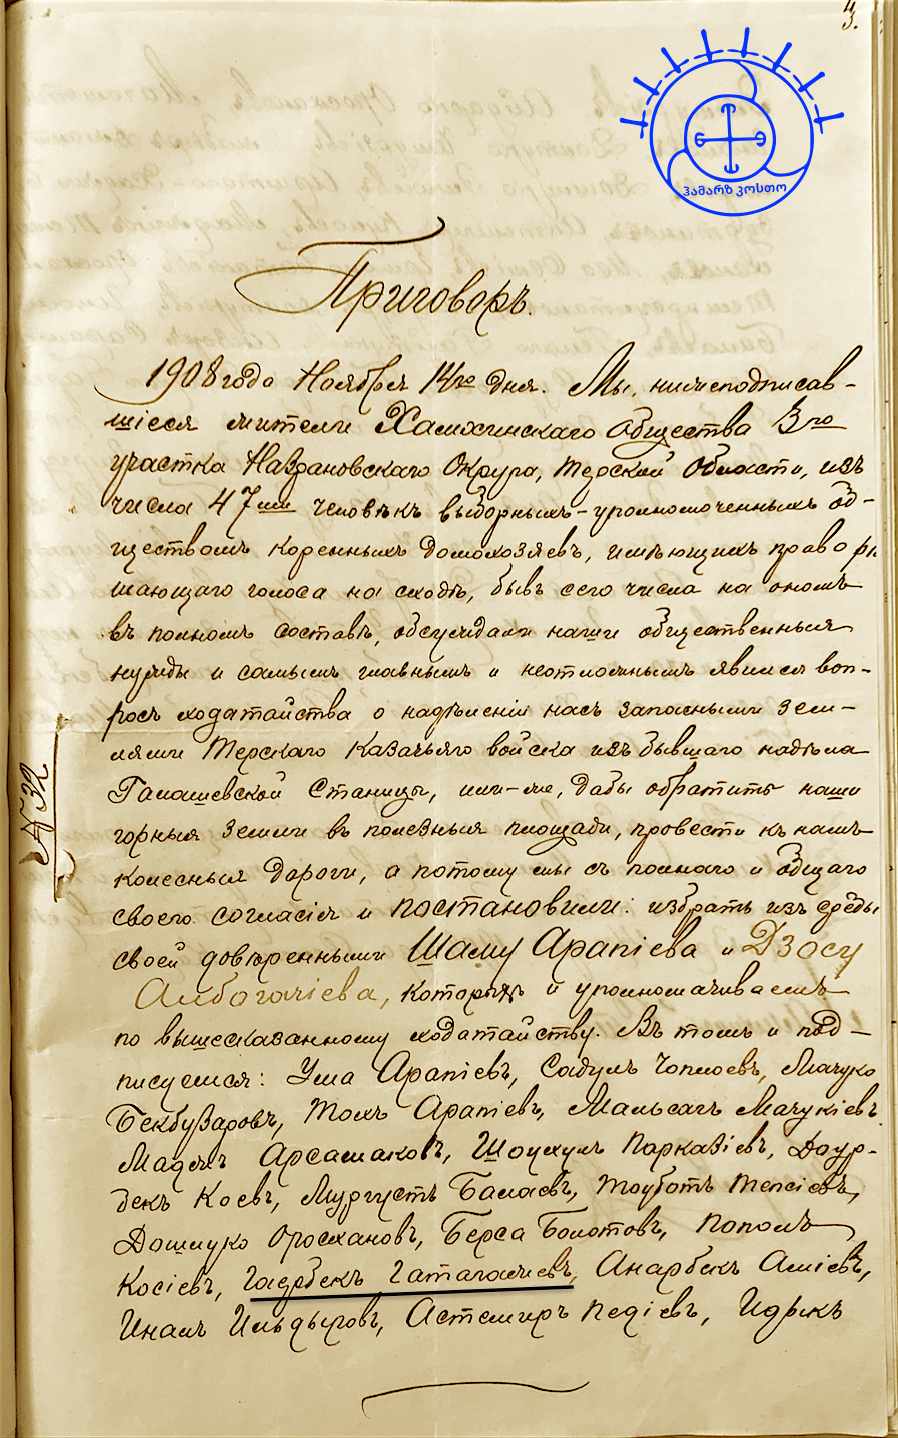 4
3.
ჰამარზ კოსთო
Приговоръ.
1908 года Ноября 14го дня. Мы, нижеподписав-
шіеся жители Хамхинскаго общества 3го
участка Назрановскаго Округа, Терской области, изъ
числа 47ми человѣкъ выборныхъ-уполномоченныхъ об-
ществомъ коренныхъ домохозяевъ, имѣющихъ право рѣ
шающаго голоса на сходѣ, бывъ сего числа на ономъ
въ полномъ составѣ, обсуждали наши общественныя
нужды и самымъ главнымъ и неотложнымъ явился воп-
росъ ходатайства о надѣленіи насъ запасными зем-
лями Терскаго Казачьяго войска изъ бывшаго надѣла
Галашевской Станицы, или-же, дабы обратить наши
горныя земли въ полезныя площади, провести къ намъ
колесныя дороги, а потому мы съ полнаго и общаго
своего согласія и постановили: избрать изъ среды
своей довѣренными Шаму Арапіева и Дзосу
Албогачіева, которыхъ и уполномачиваемъ
по вышесказанному ходатайству. Въ томъ и под-
писуемся: Ума Арапіевъ, Садулъ Чоплоевъ, Мачуко
Бекбузаровъ, Тохъ Арапіевъ, Мальсагъ Мачукіевъ
Мадыгъ Арсамаковъ, Шоухулъ Парказіевъ, Доур-
бекъ Коевъ, Мургустъ Балаевъ, Тоуботъ Тепсіевъ,
Дошлуко Оросхановъ, Берса Болотовъ, Пополъ
Косіевъ, Гаербекъ Гатагажиевъ, Анарбекъ Аліевъ,
Иналъ Ильдыговъ, Астемиръ Педіевъ, Идрисъ
№ 32